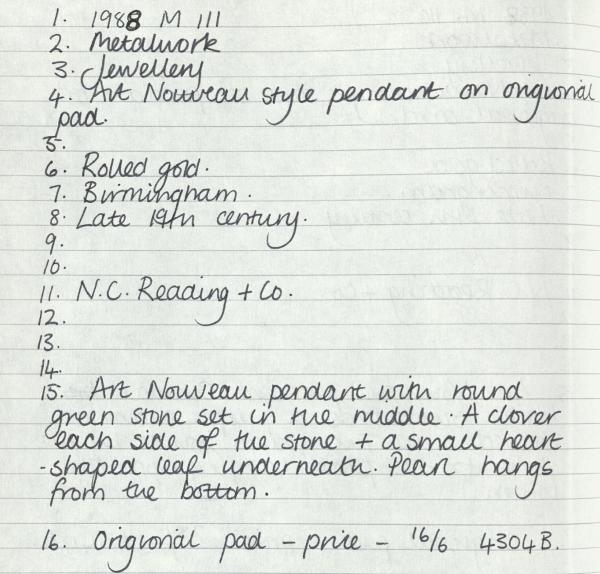 1. 1988 M 111
2. Metalwork
3. Jewellery
4. Art Nouveau style pendant on origional
pad.
5.
6. Rolled gold.
7. Birmingham.
8. Late 19th century.
9.
10.
11. N.C. Reading + Co.
12.
13.
14.
15. Art Nouveau pendant with round
green stone set in the middle. A clover
each side of the stone + a small heart
-shaped leaf underneath. Pearl hangs
from the bottom.
16. Origional pad - price - 16/6 4304B.